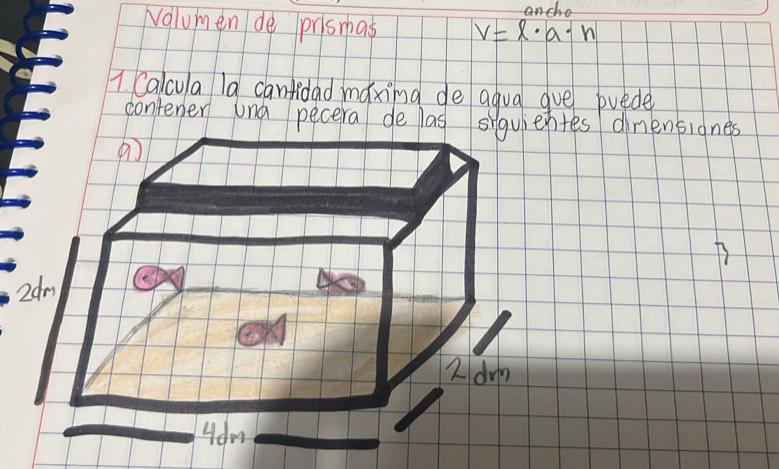 Volumen de prismas
ancho
V= l·a·h
1. Calcula la cantidad máxima de agua que puede
contener una pecera de las siguientes dimensiones
a)
2dm
2 dm
4dm